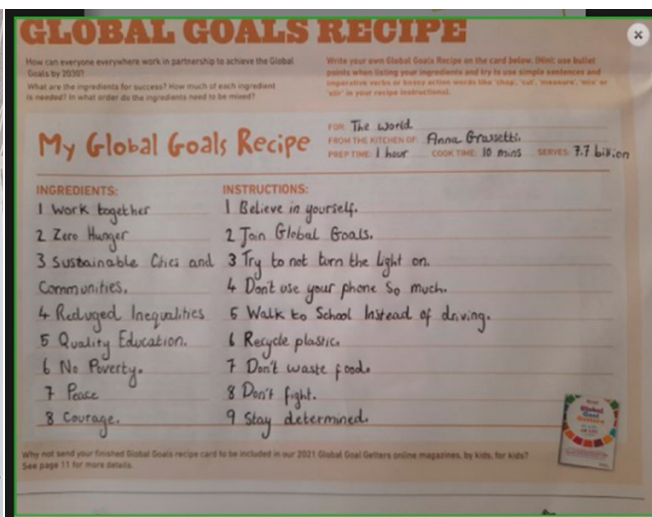 GLOBAL GOALS RECIPE
How can everyone everywhere work in partnership to achieve the Global
Goals by 2030?
What are the ingredients for success? How much of each ingredient
is needed? In what order do the ingredients need to be mixed?
Write your own Global Goals Recipe on the card below. (Hint: use bullet
points when listing your ingredients and try to use simple sentences and
imperative verbs or bossy action words like 'chop', 'cut', 'measure', 'mix' or
'stir' in your recipe instructions).
My Global Goals Recipe
FOR: The world
FROM THE KITCHEN OF: Anna Grassetti.
PREP TIME: 1 hour COOK TIME: 10 mins SERVES: 7.7 billion
INGREDIENTS:
1 Work together
2 Zero Hunger
3 Sustainable Cities and
Communities.
4 Reduged Inequalities
5 Quality Education.
6 No Poverty.
7 Peace
8 Courage.
INSTRUCTIONS:
1 Believe in yourself.
2 Join Global Goals.
3 Try to not turn the light on.
4 Don't use your phone so much.
5 Walk to School Instead of driving.
6 Recycle plastic.
7 Don't waste food.
8 Don't fight.
9 Stay determined.
Global
Goal
Why not send your finished Global Goals recipe card to be included in our 2021 Global Goal Getters online magazines, by kids, for kids?
See page 11 for more details.